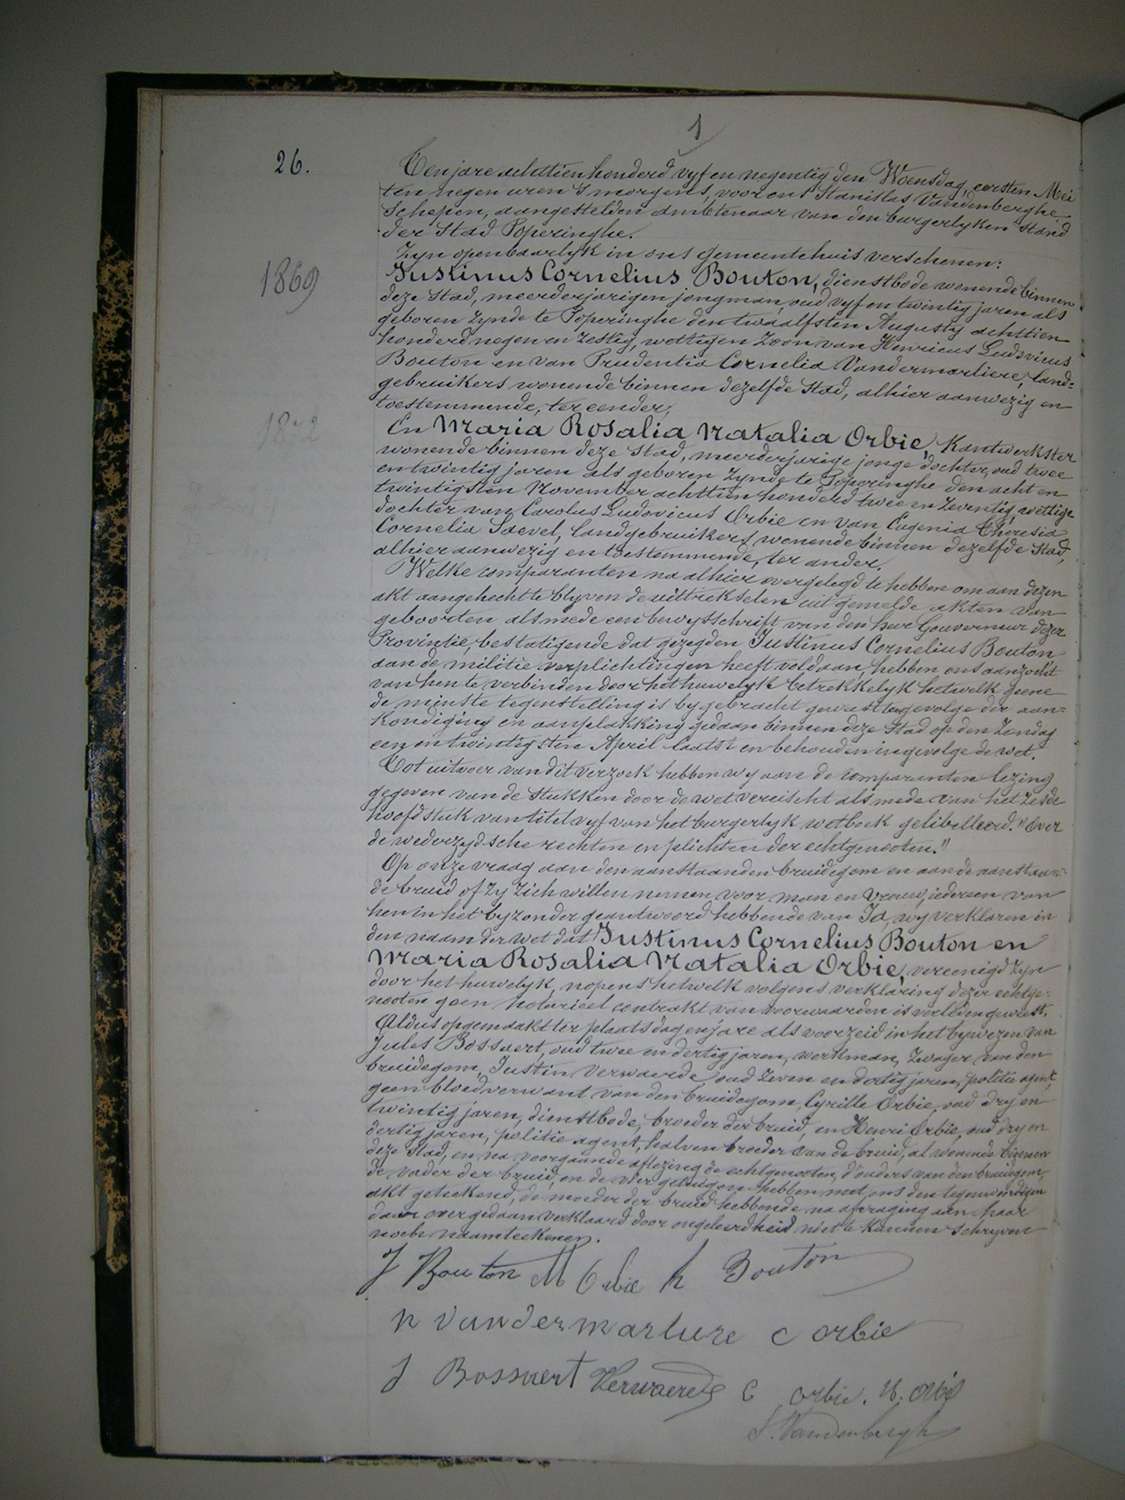 1
26.
Ten jare achttien honderd vyf en negentig den Woensdag, eersten Mei
ten negen uren 's morgens, voor ons Stanislas Vandenberghe
Schepen, aangestelden ambtenaar van den burgerlyken stand
der Stad Poperinghe.
Zyn openbaarlyk in ons gemeentehuis verschenen:
1869
Justinus Cornelius Bouton, dienstbode wonende binnen
deze Stad, meerderjarigen jongman, oud vyf en twintig jaren als
geboren zynde te Poperinghe den twaalfsten Augusty achttien
honderd negen en zestig, wettigen zoon van Henricus Ludovicus
Bouton en van Prudentia Cornelia Vandermarliere, land=
gebruikers wonende binnen dezelfde Stad, alhier aanwezig en
toestemmende, ter eender,
1872
En Maria Rosalia Natalia Orbie, Kantwerkster
wonende binnen deze Stad, meerderjarige jonge dochter, oud twee
en twintig jaren als geboren zynde te Poperinghe den acht en
twintigsten November achttien honderd twee en zeventig, wettige
dochter van Carolus Ludovicus Orbie en van Eugenia Theresia
Cornelia Saevel, landgebruikers, wonende binnen dezelfde Stad,
alhier aanwezig en toestemmende, ter ander.
Welke comparanten na alhier overgelegd te hebben om aan dezen
akt aangehecht te blyven de uittrekselen uit gemelde akten van
geboorten alsmede een bewysschrift van den heer Gouverneur dezer
Provintie, bestatigende dat gezegden Justinus Cornelius Bouton
aan de militie verplichtingen heeft voldaan, hebben ons aanzocht
van hen te verbinden door het huwelyk betrekkelyk hetwelk geene
de minste tegenstelling is by gebracht geweest tengevolge der aan=
kondiging en aanplakking gedaan binnen deze Stad op den Zondag
een en twintigsten April laatst en behouden ingevolge de wet.
Tot uitvoer van dit verzoek hebben wy aan de comparanten lezing
gegeven van de stukken door de wet vereischt alsmede van het zesde
hoofdstuk van titel vyf van het burgerlyk wetboek gelibelleerd. "Over
de wederzydsche rechten en plichten der echtgenooten."
Op onze vraag aan den aanstaanden bruidegom en aan de aanstaan=
de bruid of zy zich willen nemen voor man en vrouw, iedereen van
hen in het byzonder geantwoord hebbende van Ja, wy verklaren in
den naam der wet dat Justinus Cornelius Bouton en
Maria Rosalia Natalia Orbie, vereenigd zyn
door het huwelyk, nopens hetwelk volgens verklaring dezer echtge=
nooten geen notarieel contrakt van voorwaarden is verleden geweest.
Aldus opgemaakt ter plaats dag en jare als voorzeid in het bywezen van
Jules Bossaert, oud twee en dertig jaren, werkman, zwager van den
bruidegom, Justin Verwaerde, oud zeven en dertig jaren, politie agent,
geen bloedverwant van den bruidegom, Cyrille Orbie, oud dry en
twintig jaren, dienstbode, broeder der bruid, en Henri Orbie, oud dry en
dertig jaren, politie agent, halven broeder van de bruid, al wonende binnen
deze Stad, en na voorgaande aflezing de echtgenooten, d'ouders van den bruidegom,
de vader der bruid, en de vier getuigen hebben met ons den tegenwoordigen
akt geteekend, de moeder der bruid hebbende na afvraging aan haar
daar over gedaan verklaard door ongeleerdheid niet te kunnen schryven
noch naamteekenen.
J Bouton M Orbie h Bouton
n vandermarliere c orbie
J Bossaert Verwaerde C orbie. H. orbie
S. Vandenberghe